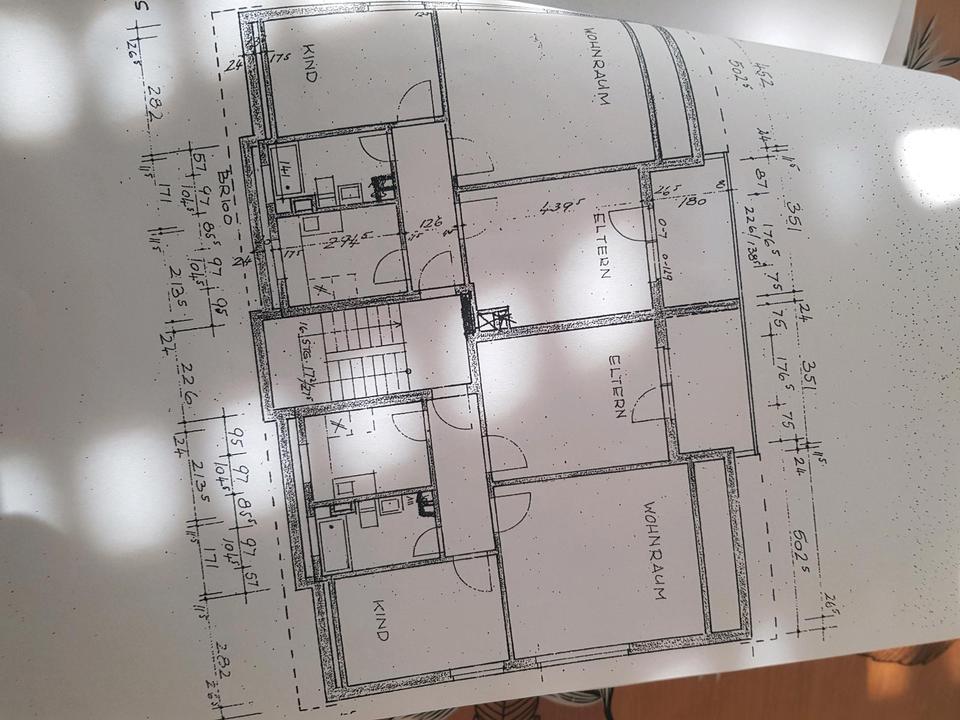 KIND
WOHNRAUM
ELTERN
ELTERN
WOHNRAUM
KIND
BR:100
24
17⁵
141
294⁵
17⁵
126
439⁵
26⁵
180
16 STG.
26⁵
282
11⁵
171
11⁵
213⁵
24
226
24
213⁵
11⁵
171
11⁵
282
26⁵
51
97
104⁵
85⁵
97
104⁵
95
95
97
104⁵
85⁵
97
104⁵
51
452
502⁵
24
11⁵
87
351
176⁵
226/138⁵
75
24
75
351
176⁵
75
11⁵
24
502⁵
26⁵